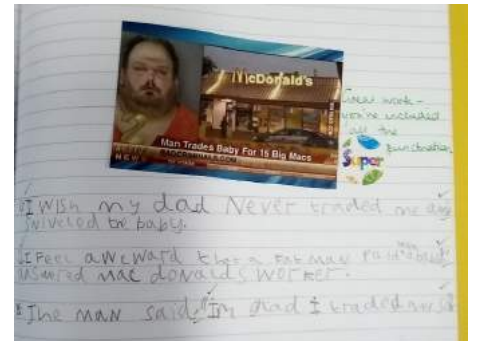 McDonald's
Man Trades Baby For 15 Big Macs
NEWS
BADCRIMINALS.COM
work -
you've included
all the
punctuation.
Super
I wish my dad Never traded me
sniveled the baby.
I Feel awcward that a Fat man
answred mac donalds worker.
The man said "Im glad I traded my